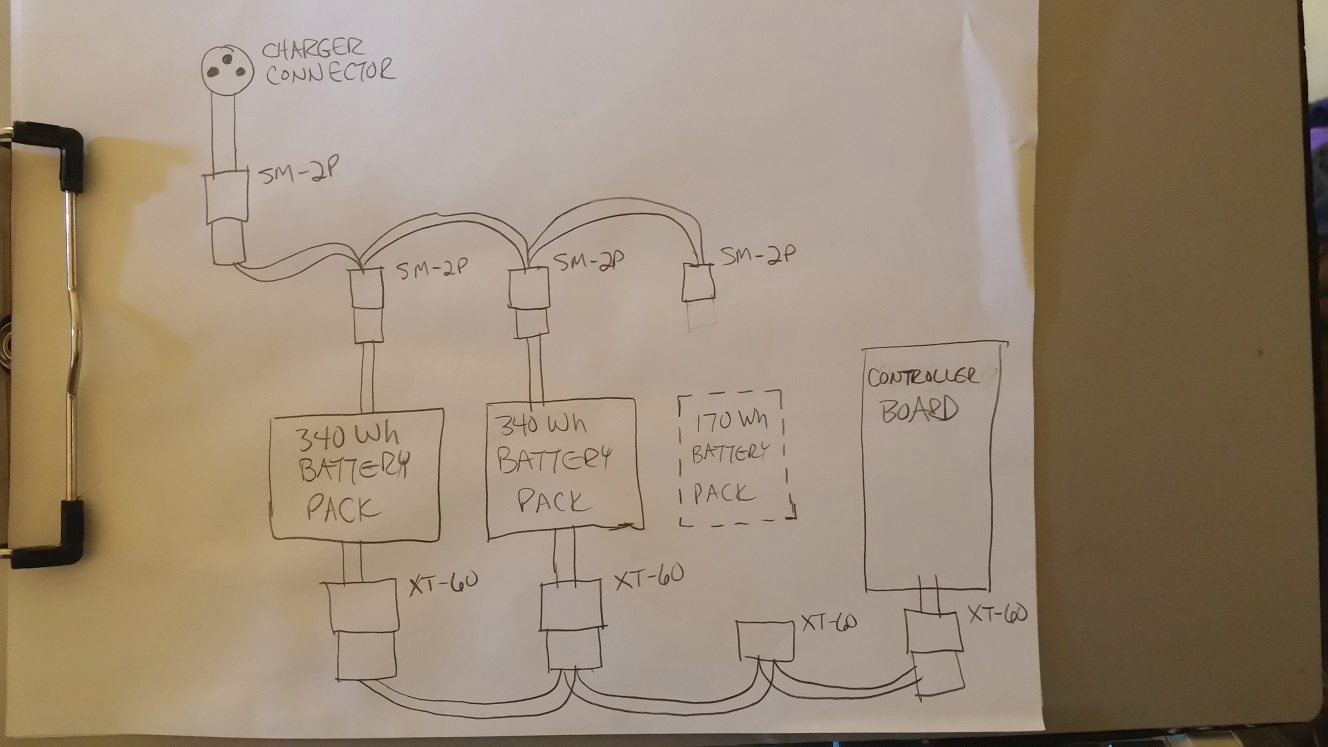 CHARGER
CONNECTOR
SM-2P
SM-2P
SM-2P
SM-2P
340 Wh
BATTERY
PACK
340 Wh
BATTERY
PACK
170 Wh
BATTERY
PACK
CONTROLLER
BOARD
XT-60
XT-60
XT-60
XT-60